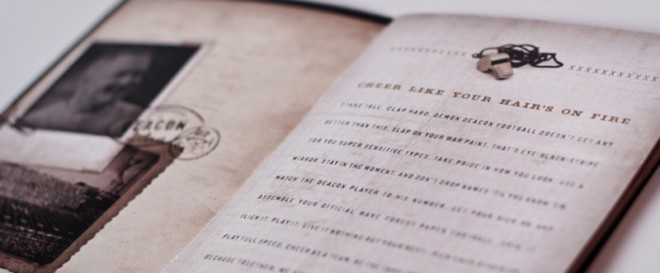 DEACON
CHEER LIKE YOUR HAIR'S ON FIRE
STAND TALL. CLAP HARD. DEMON DEACON FOOTBALL DOESN'T GET ANY
BETTER THAN THIS. SLAP ON YOUR WAR PAINT. THAT'S EYE-BLACK-STRIPE
FOR YOU SUPER SENSITIVE TYPES. TAKE PRIDE IN HOW YOU LOOK. USE A
MIRROR. STAY IN THE MOMENT. AND DON'T DROP NAMES 'TIL YOU KNOW 'EM.
MATCH THE DEACON PLAYER TO HIS NUMBER. GET YOUR
ASSEMBLE YOUR OFFICIAL WAKE FOREST PAPER FOOTBALL.
FLICK IT. PLAY IT. GIVE IT NOTHING BUT YOUR BEST.
PLAY FULL SPEED. CHEER AS A TEAM.
BECAUSE TOGETHER, WE